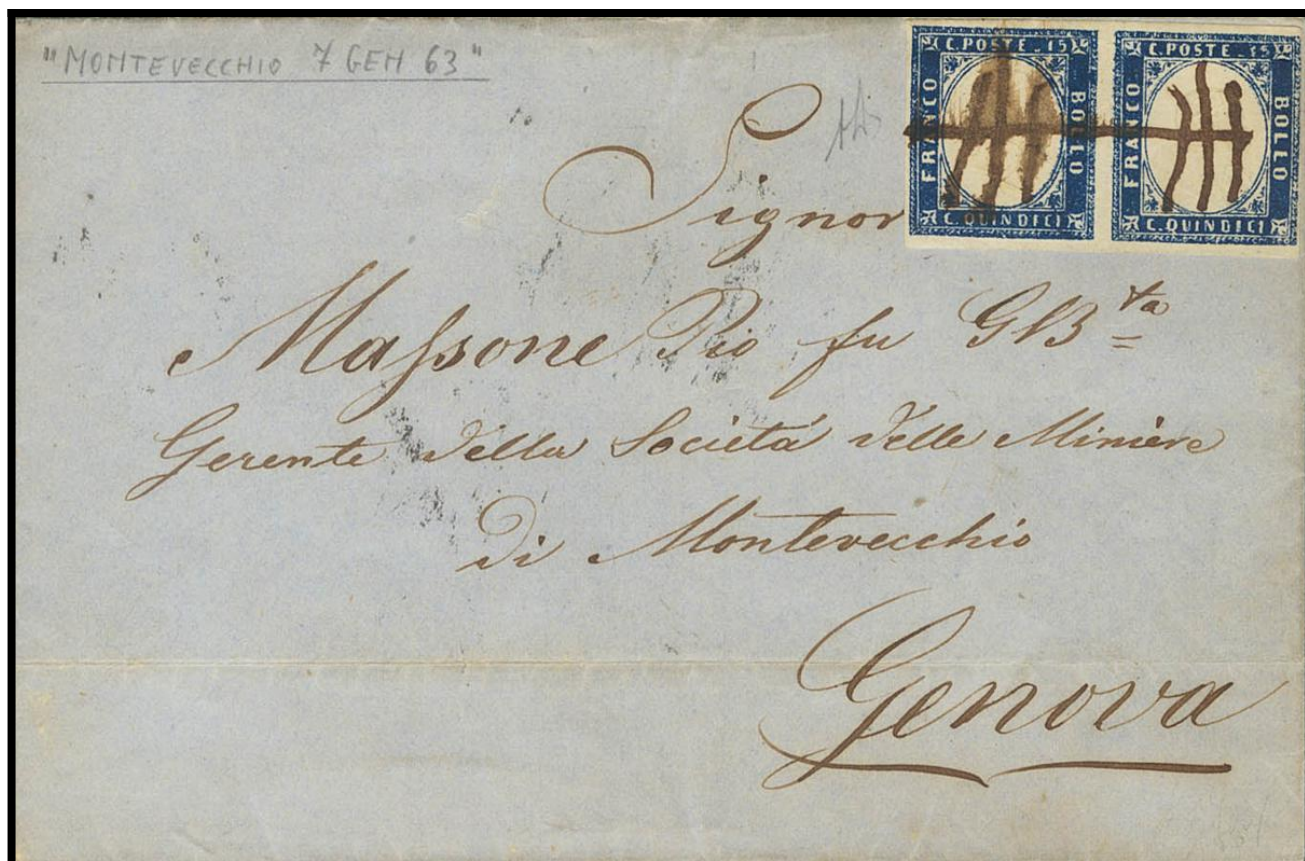 "MONTEVECCHIO 7 GEN 63"
C. POSTE - 15
FRANCO
BOLLO
C. QUINDICI
C. POSTE - 15
FRANCO
BOLLO
C. QUINDICI
Signor
Massone Pio fu GB.ta
Gerente della Società delle Minière
di Montevecchio
Genova